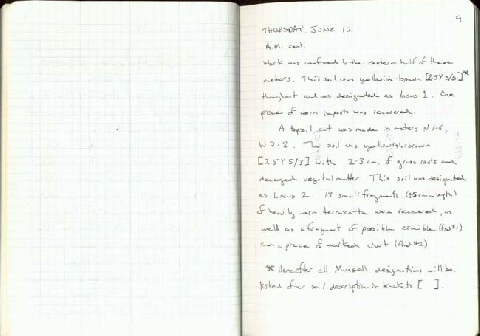 9
THURSDAY, JUNE 12
A.M. cont.
Work was confined to the eastern half of these
meters. This soil was yellowish brown [2.5Y 5/3]*
throughout and was designated as Locus 1. One
piece of worn import was recovered.
A topsoil cut was made in meters N
W 2-3. The soil was yellowish brown
[2.5Y 5/3] with 2-3 cm. of grass roots and
decayed vegetal matter. This soil was designated
as Locus 2. 17 small fragments
of heavily worn terracotta were recovered, as
well as a fragment of possible crucible (Find #1)
and a piece of worked chert (Find #2)
* Hereafter all Munsell designations will be
listed after soil description in brackets [ ].